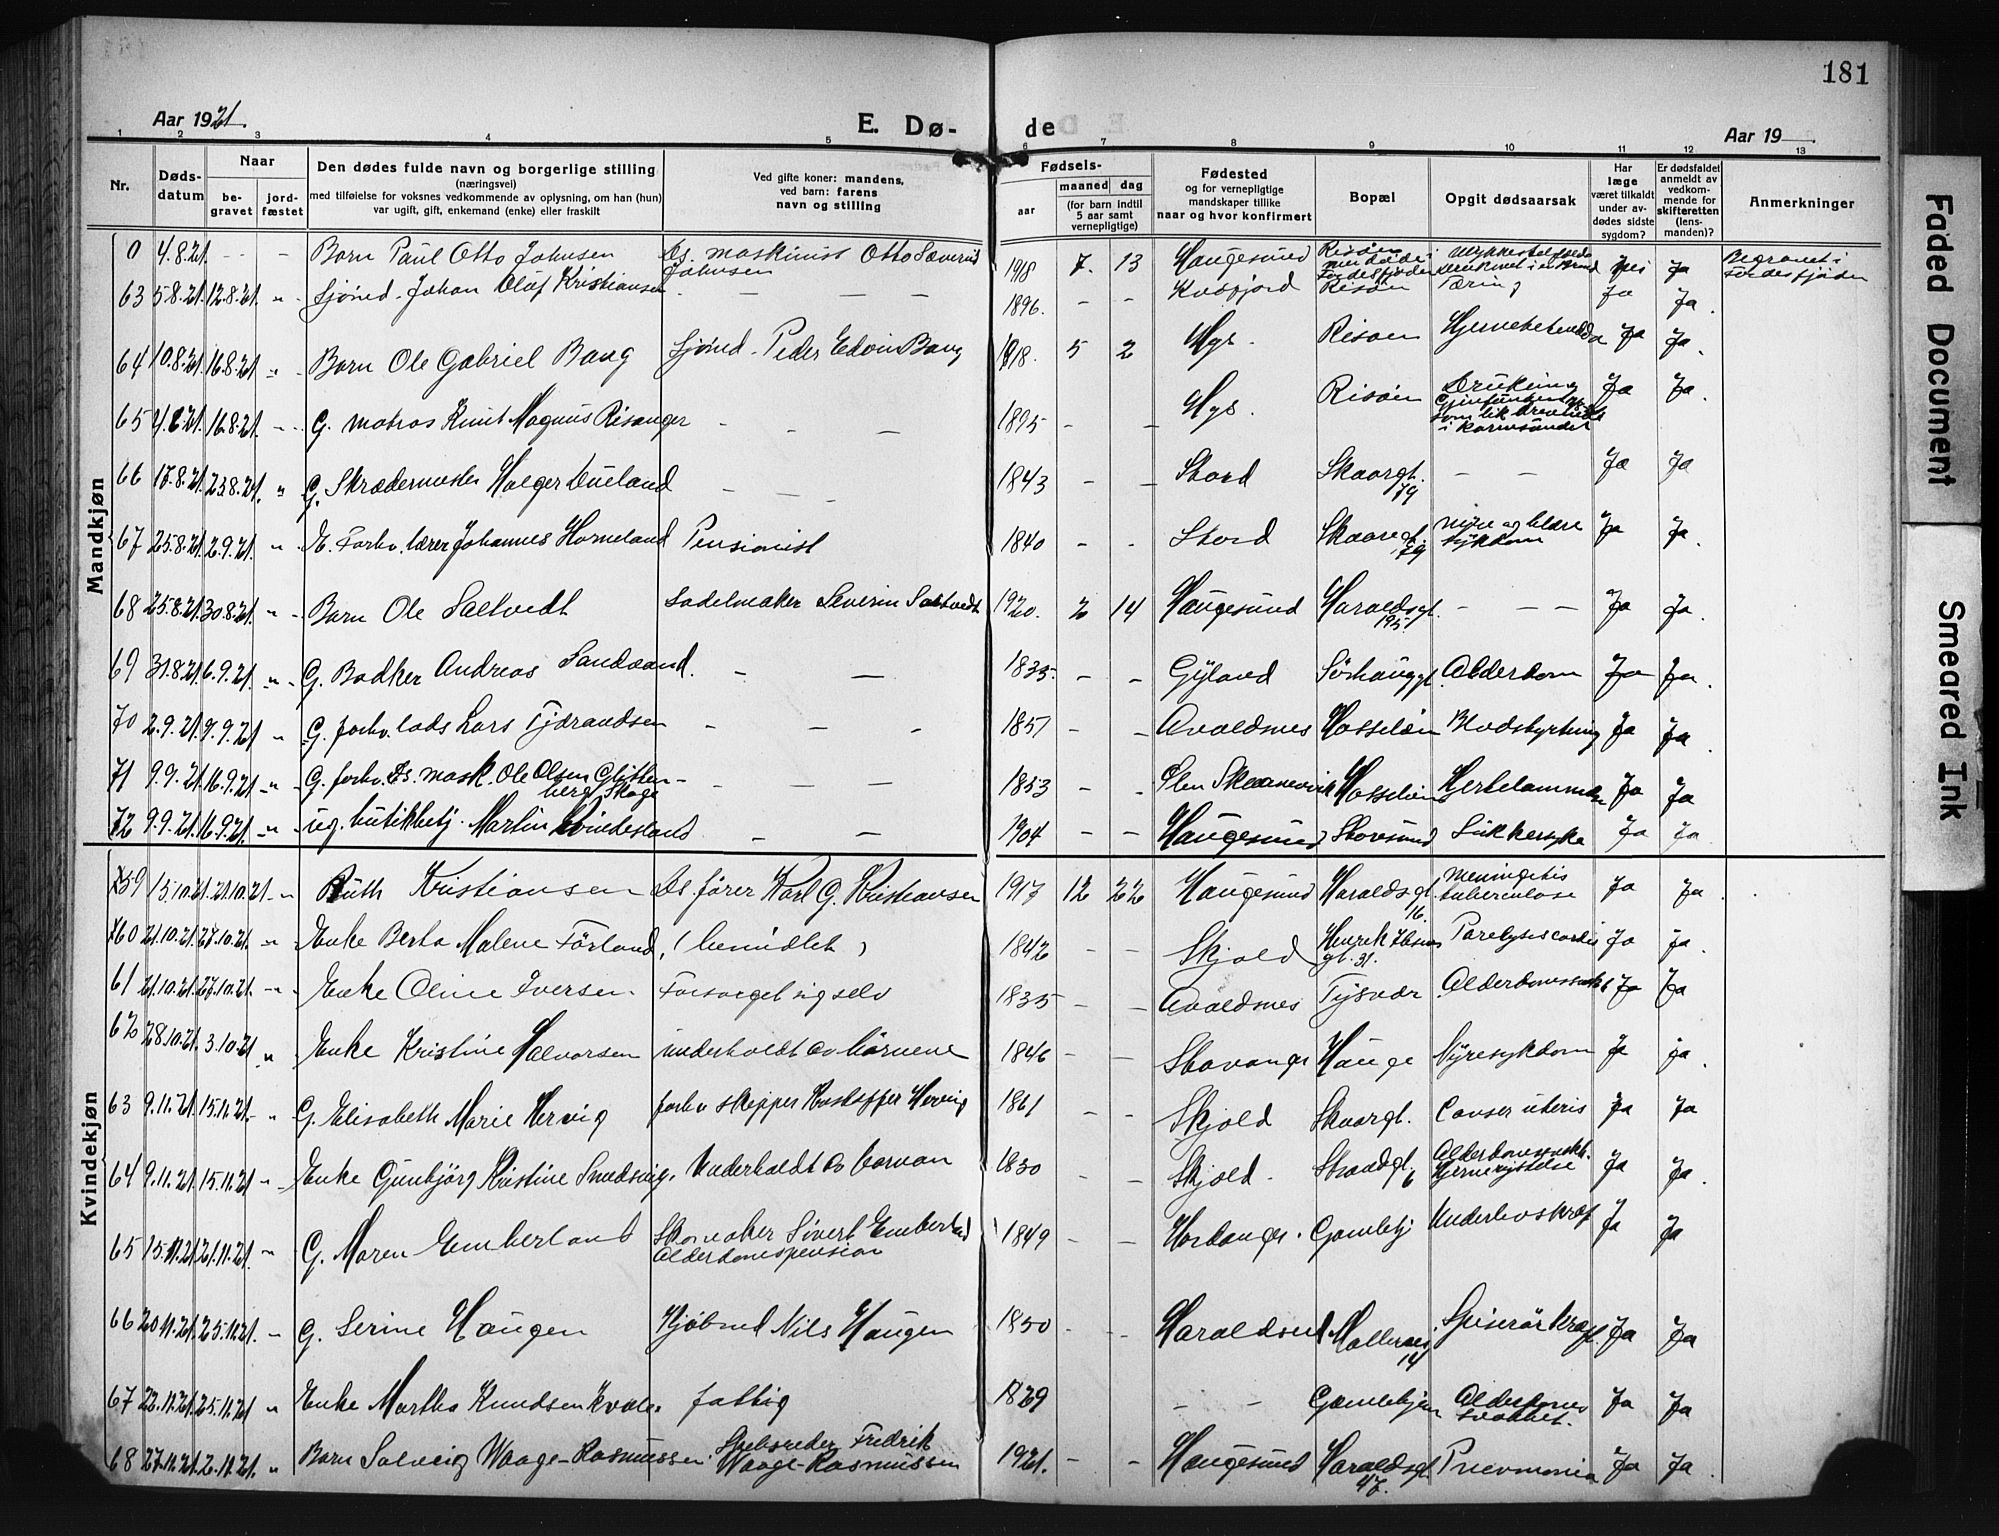 181
Aar 1921.
E. Dø- de
Aar 19
1 2 3 4 5 6 7 8 9 10 11 12 13
Nr.
Dødsdatum
Naar
begravet
jordfæstet
Den dødes fulde navn og borgerlige stilling
(næringsvei)
med tilføielse for voksnes vedkommende av oplysning, om han (hun)
var ugift, gift, enkemand (enke) eller fraskilt
Ved gifte koner: mandens,
ved barn: farens
navn og stilling
Fødsels-
aar
maaned
dag
(for barn indtil
5 aar samt
vernepligtige)
Fødested
og for vernepligtige
mandskaper tillike
naar og hvor konfirmert
Bopæl
Opgit dødsaarsak
Har
læge
været tilkaldt
under av-
dødes sidste
sygdom?
Er dødsfaldet
anmeldt av
vedkom-
mende for
skifteretten
(lens-
manden)?
Anmerkninger
Mandkjøn
0 4.8.21. - - Barn Paul Otto Johnsen Ds. maskinist Otto Severin Johnsen 1918 7. 13 Haugesund Risøen Ja Begravet i Førdesfjorden
63 5.8.21. 12.8.21. " Sjømd. Johan Olaf Kristiansen - - - 1896. - - Kvæfjord Risøen Tæring Ja Ja.
64 10.8.21. 16.8.21. " Barn Ole Gabriel Bang Sjømd. Peder Edvin Bang 1918. 5 2 Hgs. Risøen Ja Ja.
65 16.8.21. " G. matros Knut Magnus Risanger - - - 1895 - - Hgs. Risøen Drukning i Karmsundet Ja Ja.
66 17.8.21. 23.8.21. " G. Skrædermester Holger Dueland - - - 1843 - - Stord Skaaregt. 79 - - Ja Ja
67 25.8.21. 2.9.21. " E. Forhv. lærer Johannes Horneland Pensionist 1840 - - Stord Skaaregt. 79 Nyre og blæresykdom Ja Ja.
68 25.8.21. 30.8.21. " Barn Ole Saltvedt Sadelmaker Severin Saltvedt 1920. 2 14 Haugesund Haraldsgt. 195. - - - Ja Ja.
69 31.8.21. 6.9.21. " G. Bødker Andreas Sandsand. - - 1835. - - Gyland Sørhauggt. Alderdom Ja Ja.
70 2.9.21. 9.9.21. " G. forhv. lods Lars Tjørandsen - - - 1851 - - Avaldsnes Hasseløen Blodstyrtning Ja Ja.
71 9.9.21. 16.9.21. " G. forhv. Ds. mask. Ole Olsen Skoge - - - 1853 - - Ølen Skaanevik Hasseløen Hjertelammelse Ja Ja
72 9.9.21. 16.9.21. " ug. butikbetj. Martin Kvindesland - - 1904 - - Haugesund Storesund Sukkersyke Ja Ja
Kvindekjøn
59 15.10.21. 21.10.21. " Ruth Kristiansen Ds. fører Karl G. Kristiansen 1917 12 22 Haugesund Haraldsgt. 16. Meningitis tuberculose Ja Ja.
60 21.10.21. 27.10.21. " Enke Berta Malene Førland, (bemidlet) 1842 - - Skjold Henrik Ibsens gt. 31. Paralysis cordis Ja Ja.
61 21.10.21. 27.10.21. " Enke Oline Iversen Forsørget sig selv 1835 - - Avaldsnes Tysvær Alderdomssvakh. Ja Ja
62 28.10.21. 3.10.21 " Enke Kristine Halvorsen underholdt av børnene 1846 - - Stavanger Hauge Nyresykdom Ja Ja.
63 9.11.21. 15.11.21. " G. Elisabeth Marie Hervig forhv skipper Kristoffer Hervig 1861 - - Skjold Skaaregt. Canser uteris Ja Ja
64 9.11.21. 15.11.21. " Enke Gunbjörg Kristine Smedsvig. Underholdt av barn 1830 - - Skjold. Strandgt. 6 Alderdomssvakh. Hjernerystelse Ja Ja.
65 15.11.21. 21.11.21. " G. Maren Emberland Skomaker Sivert Emberland Alderdomspension 1849 - - Hardanger. Gamlehj. Underlivskræft Ja Ja
66 20.11.21. 25.11.21. " G. Serine Haugen Kjøbmd Nils Haugen 1850 - - Haraldseid Møllerveien 14 Spiserörkræft. Ja Ja
67 22.11.21. 25.11.21 " Enke Martha Knudsen Kvale. fattig 1829 - - Gamlehjem Alderdoms svakhet. Ja Ja
68 27.11.21. 2.11.21. " Barn Solveig Waage-Rasmussen. Skibsreder Fredrik Waage-Rasmussen 1921. - - Haugesund Haraldsgt. 47. Pneumonia Ja Ja.
Faded Document
Smeared Ink